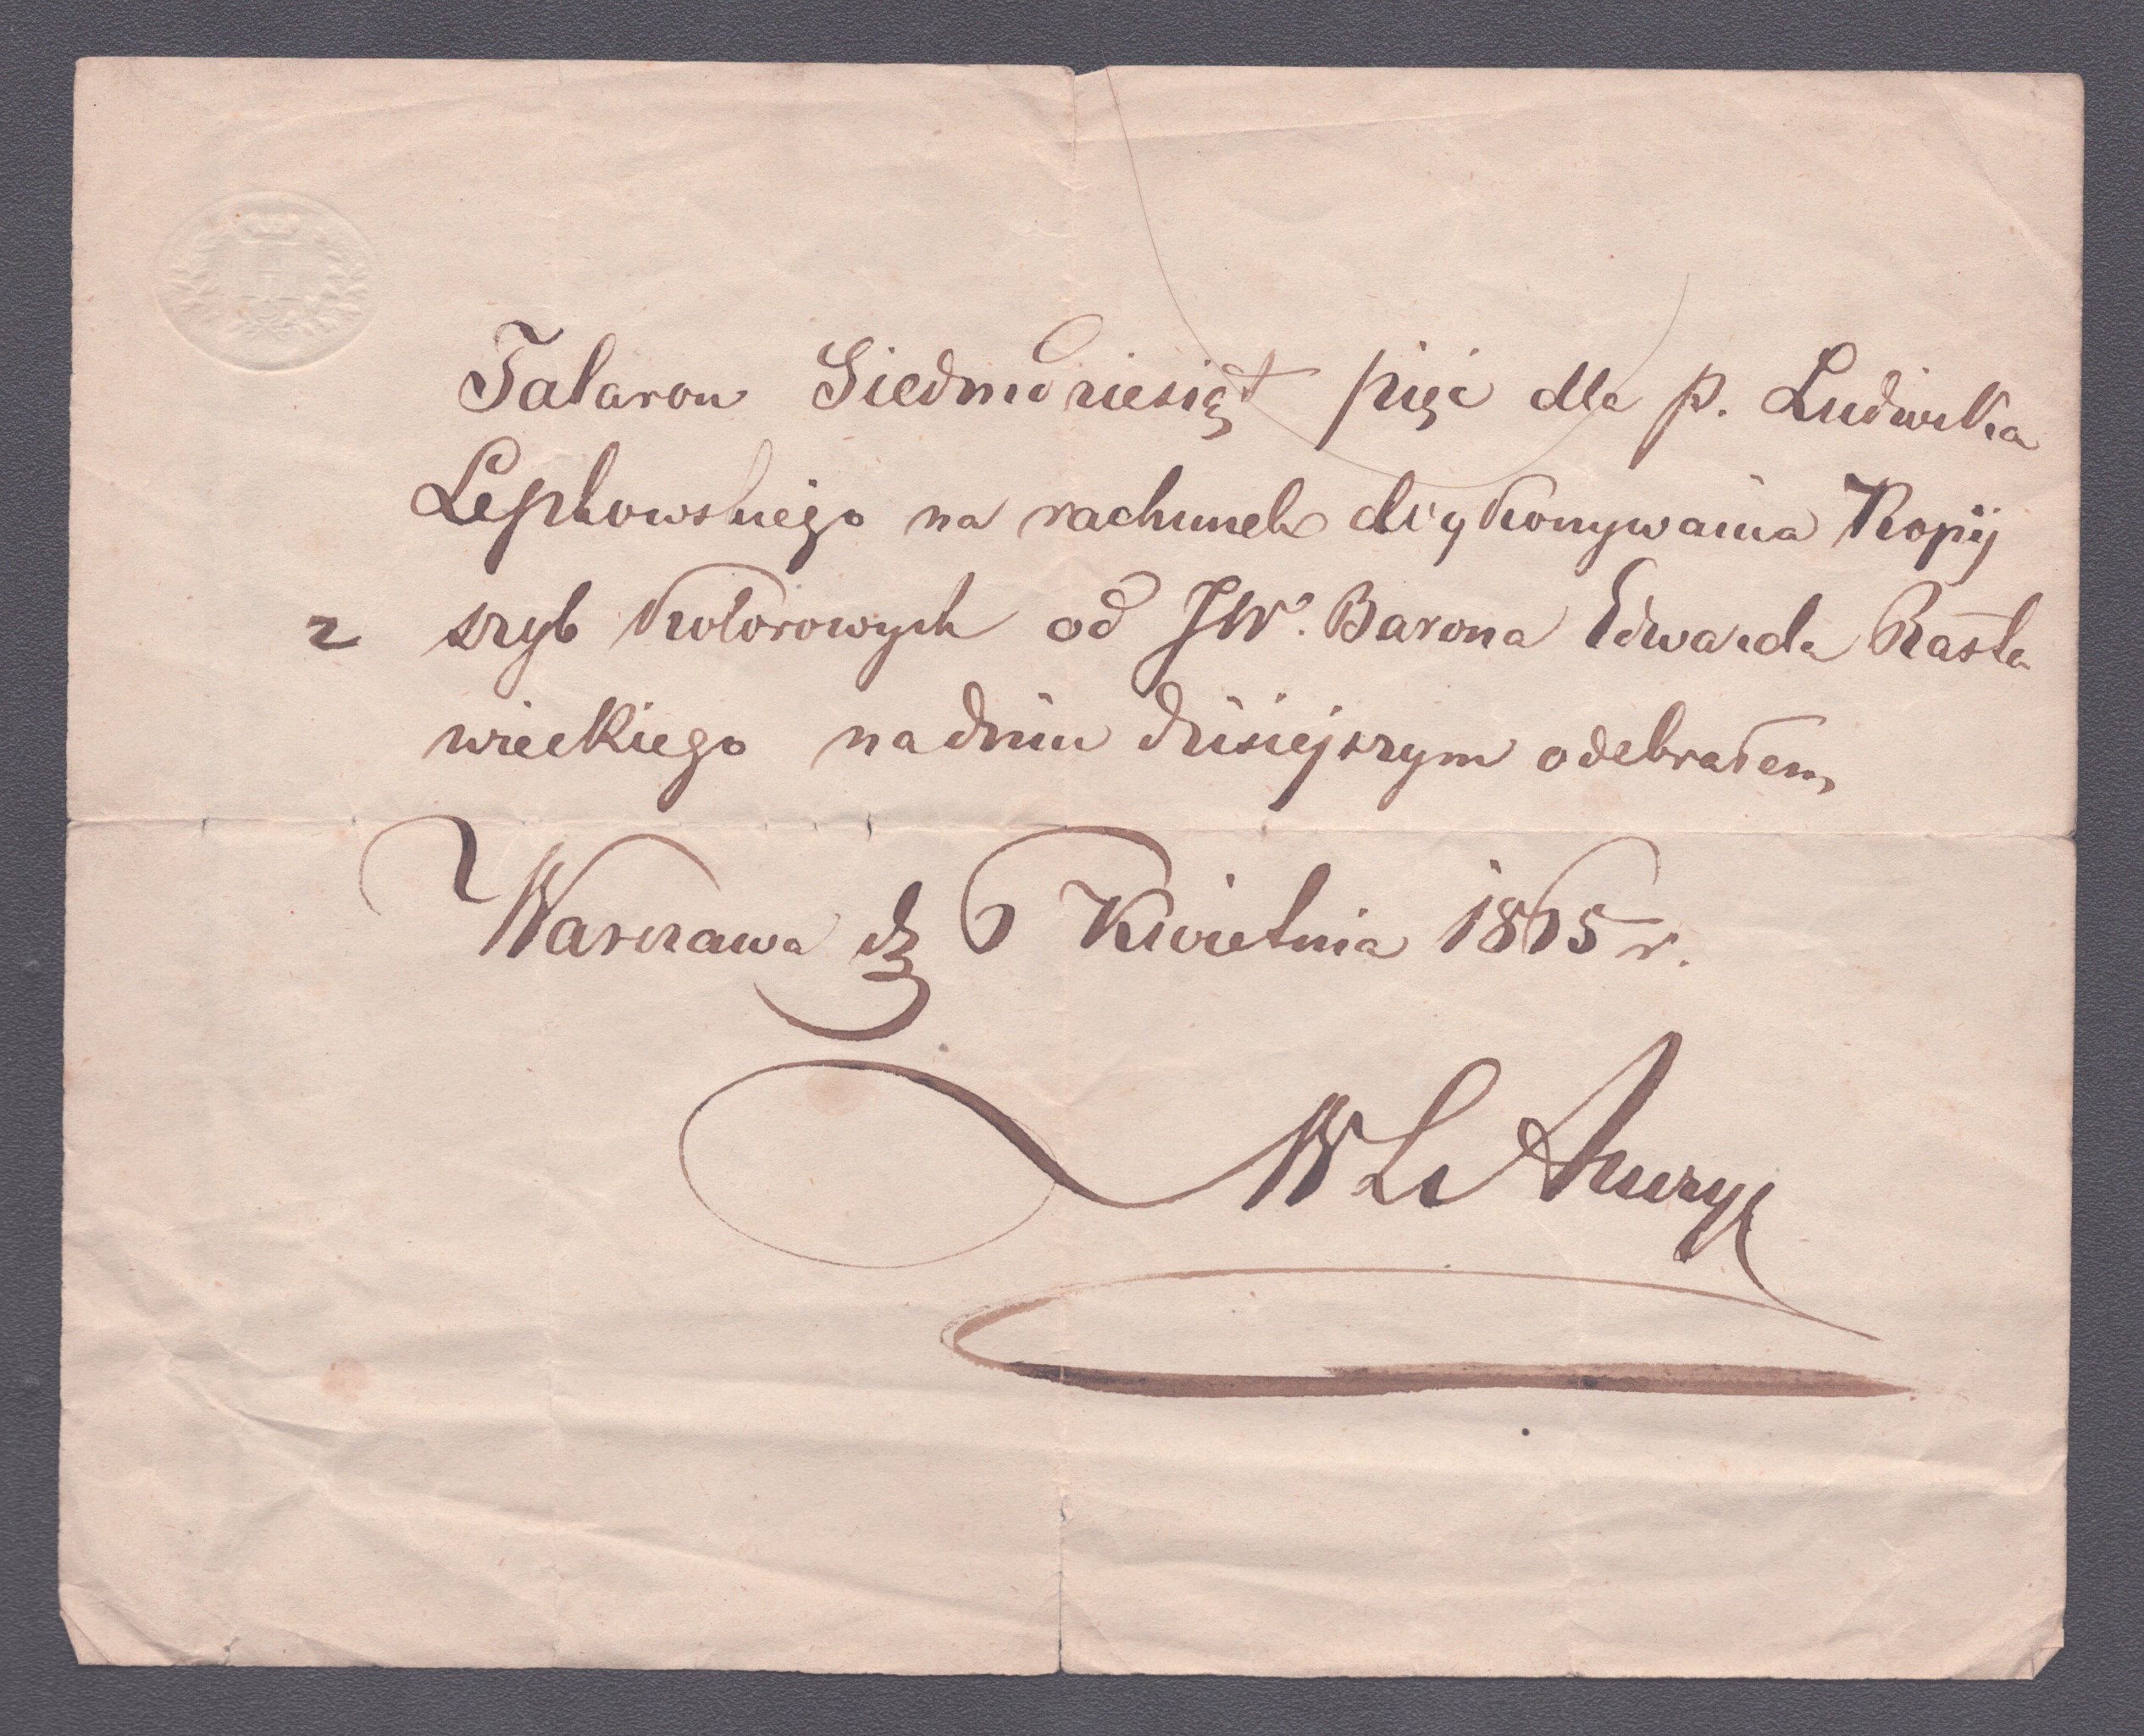 Talarow Siedmdziesiąt pięć dla p. Ludwika
Łepkowskiego na rachunek wykonywania Kopij
z szyb kolorowych od JW. Barona Edwarda Rasta
wieckiego na dniu dzisiejszym odebrałem
Warszawa d 6 Kwietnia 1865 r.
WL Anczyc